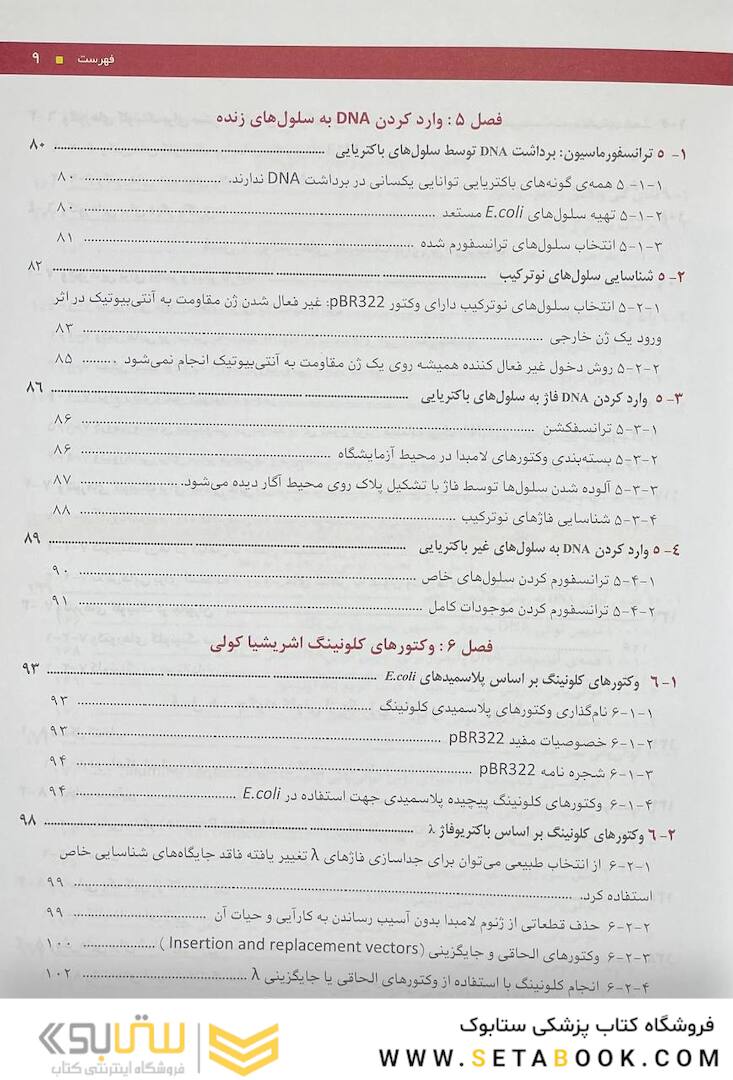 فهرست ■ ۹
فصل ۵ : وارد کردن DNA به سلول‌های زنده
۱- ۵ ترانسفورماسیون: برداشت DNA توسط سلول‌های باکتریایی ........ ۸۰
۵-۱-۱ همه‌ی گونه‌های باکتریایی توانایی یکسانی در برداشت DNA ندارند. ........ ۸۰
۵-۱-۲ تهیه سلول‌های E.coli مستعد ........ ۸۰
۵-۱-۳ انتخاب سلول‌های ترانسفورم شده ........ ۸۱
۲- ۵ شناسایی سلول‌های نوترکیب ........ ۸۲
۵-۲-۱ انتخاب سلول‌های نوترکیب دارای وکتور pBR322: غیر فعال شدن ژن مقاومت به آنتی‌بیوتیک در اثر
ورود یک ژن خارجی ........ ۸۳
۵-۲-۲ روش دخول غیر فعال کننده همیشه روی یک ژن مقاومت به آنتی‌بیوتیک انجام نمی‌شود ........ ۸۵
۳- ۵ وارد کردن DNA فاژ به سلول‌های باکتریایی ........ ۸۶
۵-۳-۱ ترانسفکشن ........ ۸۶
۵-۳-۲ بسته‌بندی وکتورهای لامبدا در محیط آزمایشگاه ........ ۸۶
۵-۳-۳ آلوده شدن سلول‌ها توسط فاژ با تشکیل پلاک روی محیط آگار دیده می‌شود. ........ ۸۷
۵-۳-۴ شناسایی فاژهای نوترکیب ........ ۸۸
۴- ۵ وارد کردن DNA به سلول‌های غیر باکتریایی ........ ۸۹
۵-۴-۱ ترانسفورم کردن سلول‌های خاص ........ ۹۰
۵-۴-۲ ترانسفورم کردن موجودات کامل ........ ۹۱
فصل ۶ : وکتورهای کلونینگ اشریشیا کولی
۱- ۶ وکتورهای کلونینگ بر اساس پلاسمیدهای E.coli ........ ۹۳
۶-۱-۱ نام‌گذاری وکتورهای پلاسمیدی کلونینگ ........ ۹۳
۶-۱-۲ خصوصیات مفید pBR322 ........ ۹۳
۶-۱-۳ شجره نامه pBR322 ........ ۹۴
۶-۱-۴ وکتورهای کلونینگ پیچیده پلاسمیدی جهت استفاده در E.coli ........ ۹۴
۲- ۶ وکتورهای کلونینگ بر اساس باکتریوفاژ λ ........ ۹۸
۶-۲-۱ از انتخاب طبیعی می‌توان برای جداسازی فاژهای λ تغییر یافته فاقد جایگاه‌های شناسایی خاص
استفاده کرد. ........ ۹۹
۶-۲-۲ حذف قطعاتی از ژنوم لامبدا بدون آسیب رساندن به کارآیی و حیات آن ........ ۹۹
۶-۲-۳ وکتورهای الحاقی و جایگزینی (Insertion and replacement vectors ) ........ ۱۰۰
۶-۲-۴ انجام کلونینگ با استفاده از وکتورهای الحاقی یا جایگزینی λ ........ ۱۰۲
فروشگاه کتاب پزشکی ستابوک
WWW.SETABOOK.COM
ستابوک
فروشگاه اینترنتی کتاب